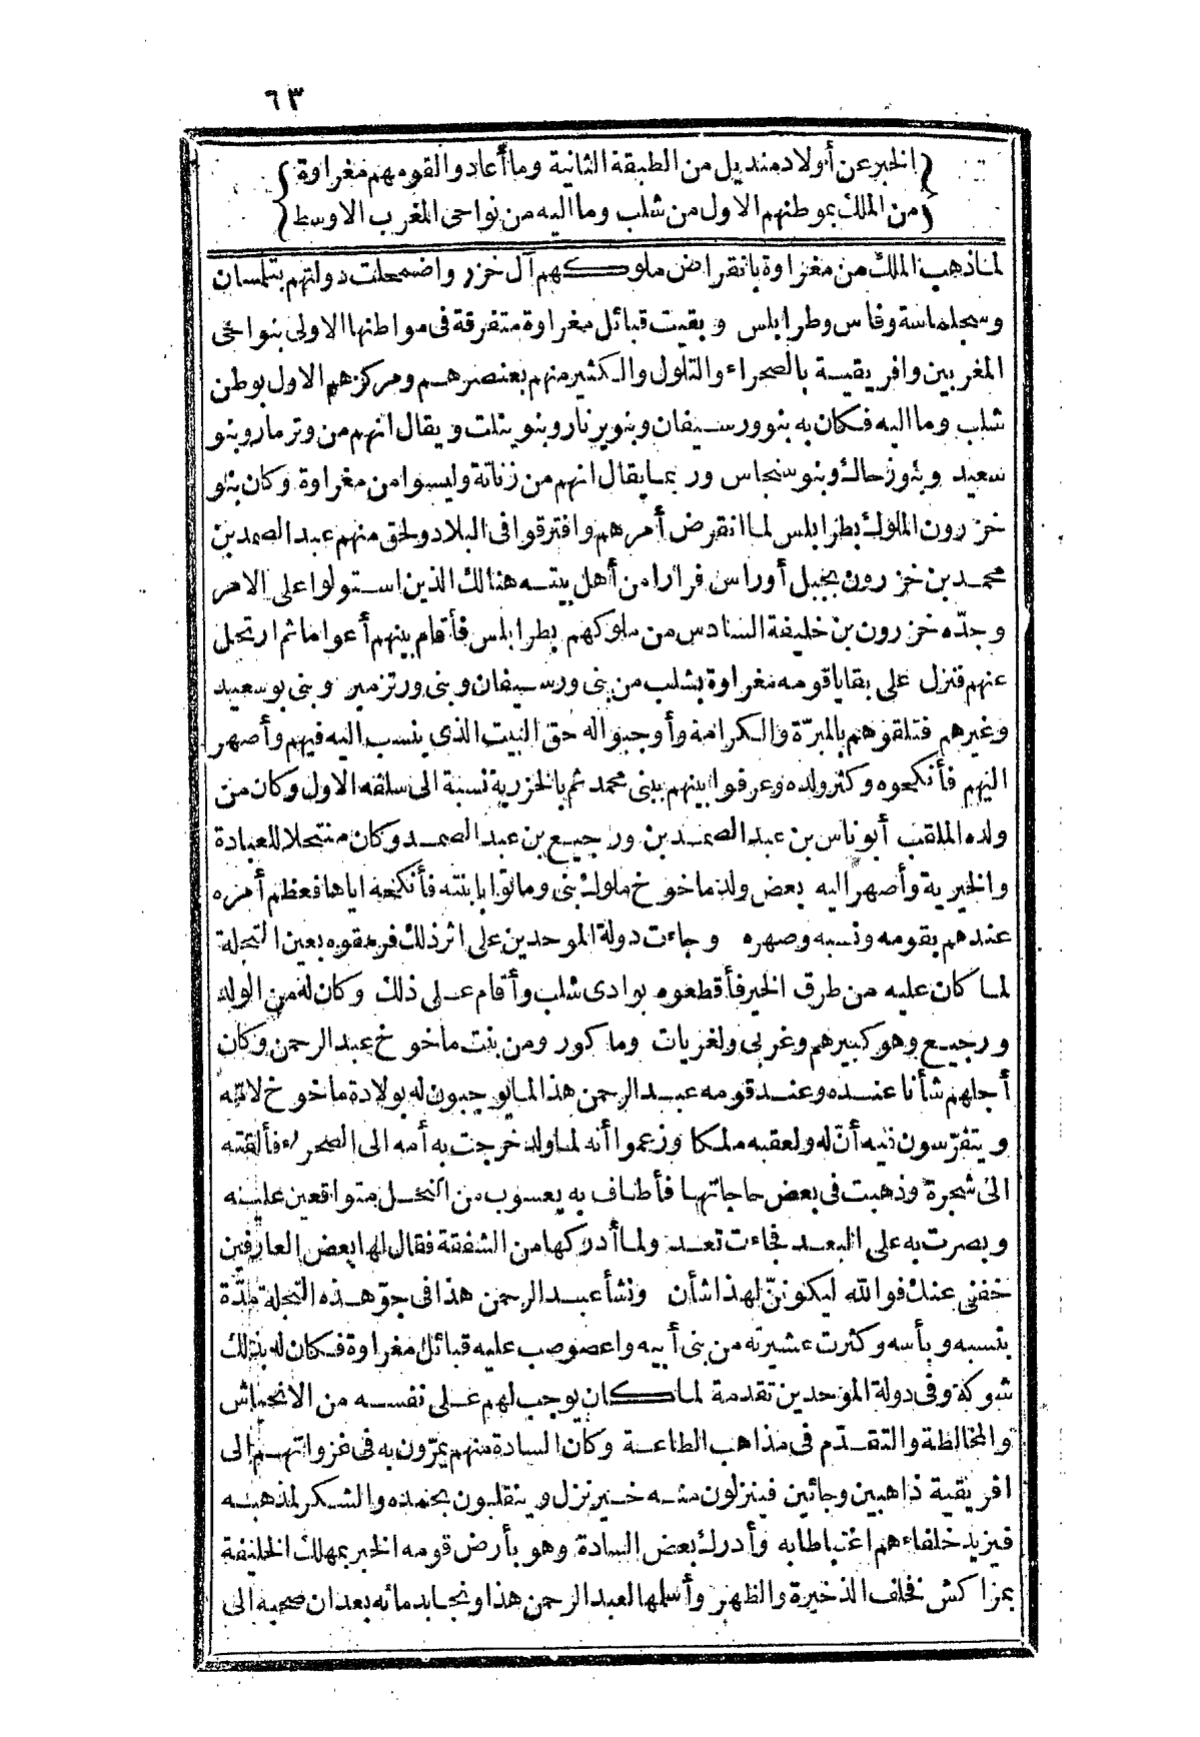 ٦٣
الخبر عن أولاد منديل من الطبقة الثانية وما أعادوا لقومهم مغراوة
من الملك بموطنهم الاول من شلب وما اليه من نواحى المغرب الاوسط
لما ذهب الملك من مغراوة بانقراض ملوكهم آل خزر واضمحلت دولتهم بتلمسان
وسجلماسة وفاس وطرابلس وبقيت قبائل مغراوة متفرقة فى مواطنها الاولى بنواحى
المغربين وافريقية بالصحراء والتلول والكثير منهم بعنصرهم ومركزهم الاول بوطن
شلب وما اليه فكان به بنو ورسيفان وبنو يرنار وبنو ينلت ويقال انهم من وترمار وبنو
سعيد وبنو زحاك وبنو سنجاس وربما يقال انهم من زناتة وليسوا من مغراوة وكان بنو
خزرون الملوك بطرابلس لما انقرض أمرهم وافترقوا فى البلاد ولحق منهم عبد الصمد بن
محمد بن خزرون بجبل أوراس فرارا من أهل بيته هنالك الذين استولوا على الامر
وجدّه خزرون بن خليفة السادس من ملوكهم بطرابلس فأقام بينهم أعواما ثم ارتحل
عنهم فنزل على بقايا قومه مغراوة بشلب من بنى ورسيفان وبنى ورتزمير وبنى بوسعيد
وغيرهم فتلقوهم بالمبرّة والكرامة وأوجبوا له حق البيت الذى ينسب اليه فيهم وأصهر
اليهم فأنكحوه وكثر ولده وعرفوا بينهم ببنى محمد ثم بالخزرية نسبة الى سلفه الاول وكان من
ولده الملقب أبو ناس بن عبد الصمد بن ورجيع بن عبد الصمد وكان منتحلا للعبادة
والخيرية وأصهر اليه بعض ولد ماخوخ ملوك بنى ومانوا بابنته فأنكحه اياها فعظم أمره
عندهم بقومه ونسبه وصهره وجاءت دولة الموحدين على اثر ذلك فرمقوه بعين التجلة
لما كان عليه من طرق الخير فأقطعوه بوادى شلب وأقام على ذلك وكان له من الولد
ورجيع وهو كبيرهم وغربى ولغريات وماكور ومن بنت ماخوخ عبد الرحمن وكان
أجلهم شأنا عنده وعند قومه عبد الرحمن هذا لما يوجبون له بولادة ماخوخ لامّه
ويتفرّسون فيه أنّ له ولعقبه ملكا وزعموا أنه لما ولد خرجت به أمه الى الصحراء فألقته
الى شجرة وذهبت فى بعض حاجاتها فأطاف به يعسوب من النحل متواقعين عليه
وبصرت به على البعد فجاءت تعد ولما أدركها من الشفقة فقال لها بعض العارفين
خفنى عنك فوالله ليكوننّ لهذا شأن ونشأ عبد الرحمن هذا فى جوّ هذه التجلة مدّة
بنسبه وبأسه وكثرت عشيرته من بنى أبيه واعصوصب عليه قبائل مغراوة فكان له بذلك
شوكة وفى دولة الموحدين تقدمة لما كان يوجب لهم على نفسه من الانحياش
والمخالطة والتقدّم فى مذاهب الطاعة وكان السادة منهم يمرّون به فى غزواتهم الى
افريقية ذاهبين وجائين فينزلون منه خير نزل وينقلبون بحمده والشكر لمذهبه
فيزيد خلفاءهم اغتباطا به وأدرك بعض السادة وهو بأرض قومه الخبر بمهلك الخليفة
بمراكش فخلف الذخيرة والظهر وأسلمها لعبد الرحمن هذا ونجا بدمائه بعد ان صحبه الى